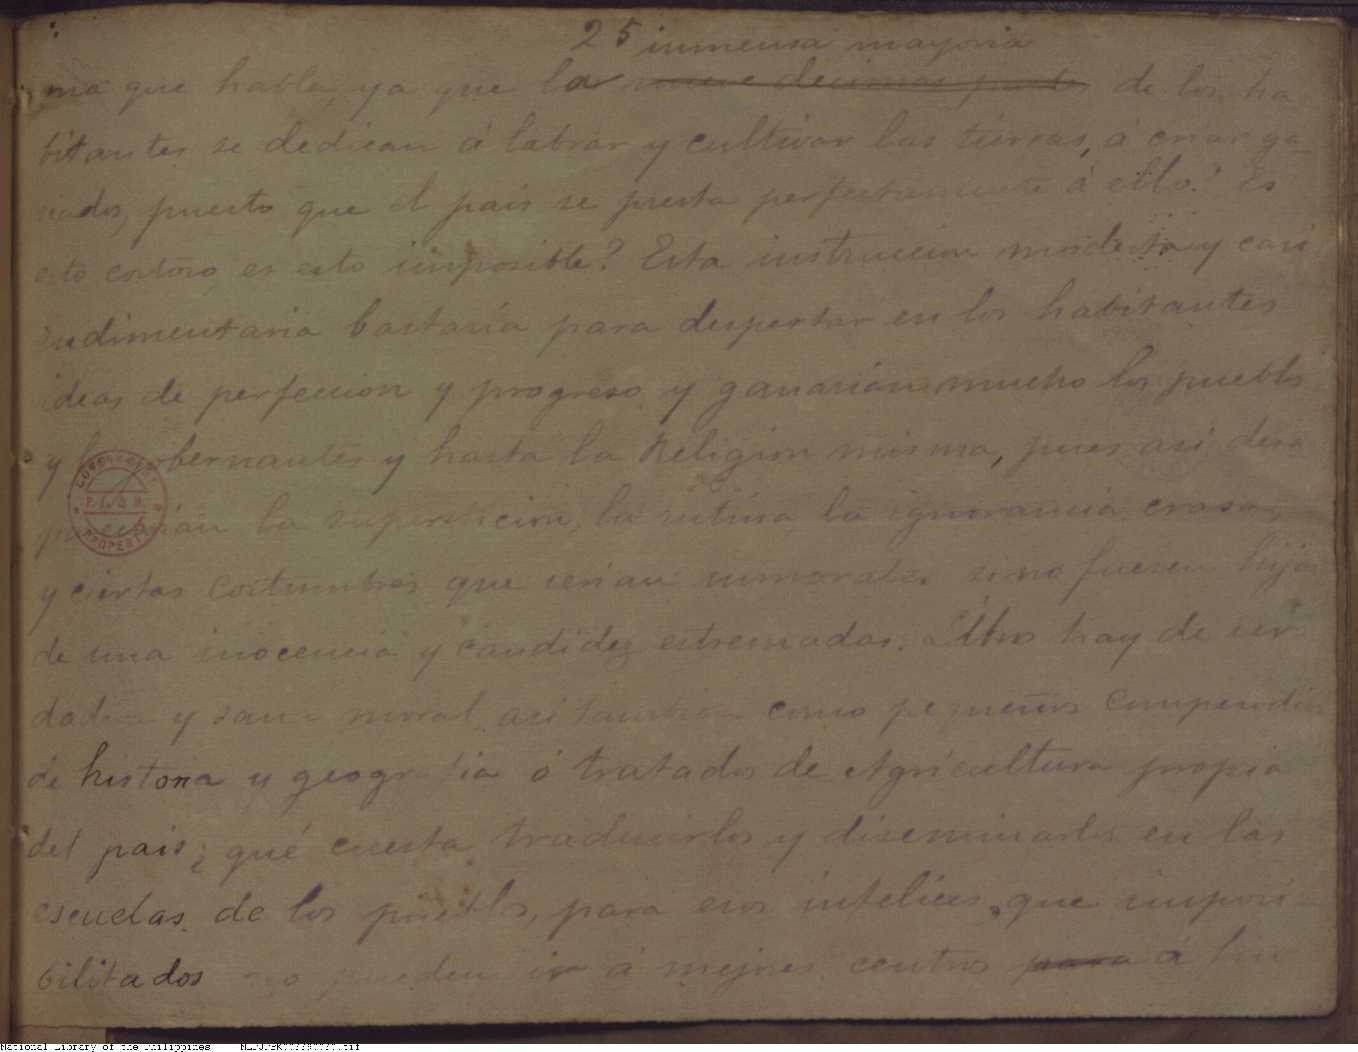 25 inmensa mayoria
ma que habla, ya que la nueve decimas partes de los ha
bitantes se dedican á labrar y cultivar las tierras, á criar ga
nados, puesto que el pais se presta perfectamente á ello? Es
esto costoso, es esto imposible? Esta instruccion modesta y casi
rudimentaria bastaría para despertar en los habitantes
ideas de perfeccion y progreso y ganarian mucho los pueblos
y los gobernantes y hasta la Religion misma, pues asi desa
parecerian la supersticion, la rutina, la ignorancia crasa,
y ciertas costumbres que serian inmorales si no fuesen hijas
de una inocencia y candidez estremadas. Libros hay de ver
dadera y sana moral asi tambien como pequeños compendios
de historia y geografia ó tratados de Agricultura propia
del pais; ¿qué cuesta traducirlos y diseminarlos en las
escuelas de los pueblos, para esos infelices, que imposi-
bilitados no pueden ir á mejores centros para á
CORNHURST
PROPERTY
National Library of the Philippines